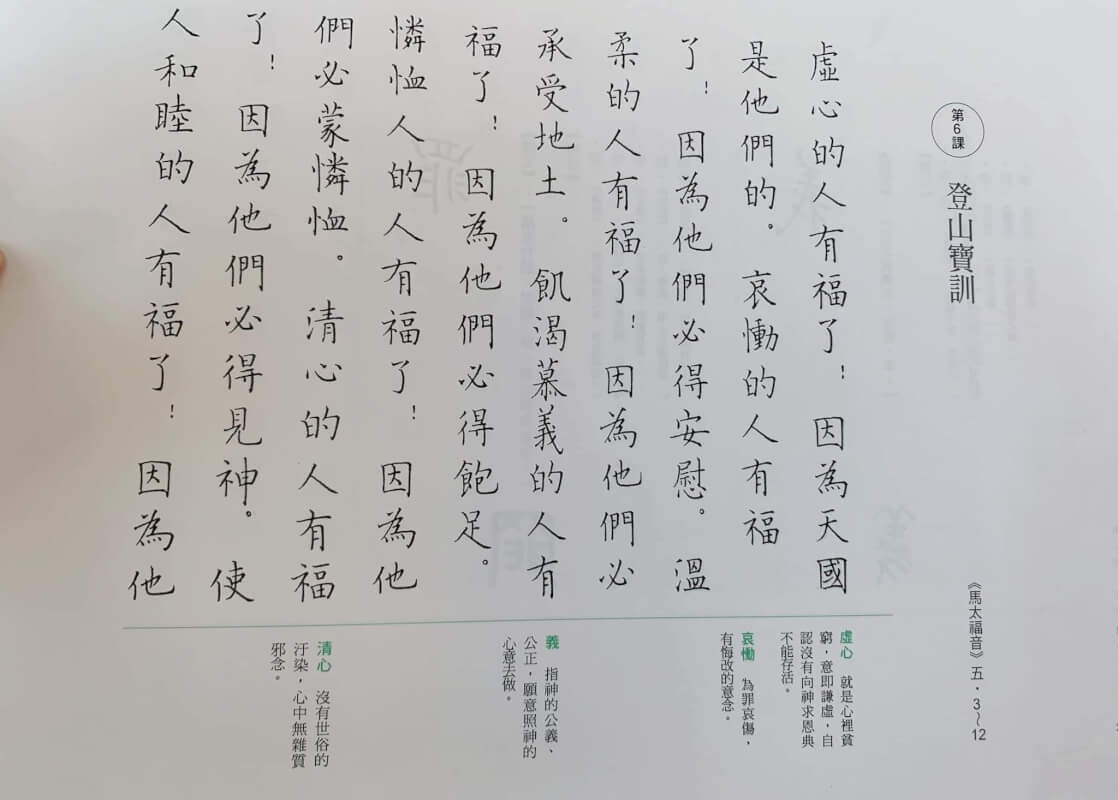 第6課
登山寶訓
《馬太福音》五.3～12
虛心的人有福了！因為天國
是他們的。哀慟的人有福
了！因為他們必得安慰。溫
柔的人有福了！因為他們必
承受地土。飢渴慕義的人有
福了！因為他們必得飽足。
憐恤人的人有福了！因為他
們必蒙憐恤。清心的人有福
了！因為他們必得見神。使
人和睦的人有福了！因為他
虛心 就是心裡貧
窮，意即謙虛，自
認沒有向神求恩典
不能存活。
哀慟 為罪哀傷，
有悔改的意念。
義 指神的公義、
公正，願意照神的
心意去做。
清心 沒有世俗的
汙染，心中無雜質
邪念。